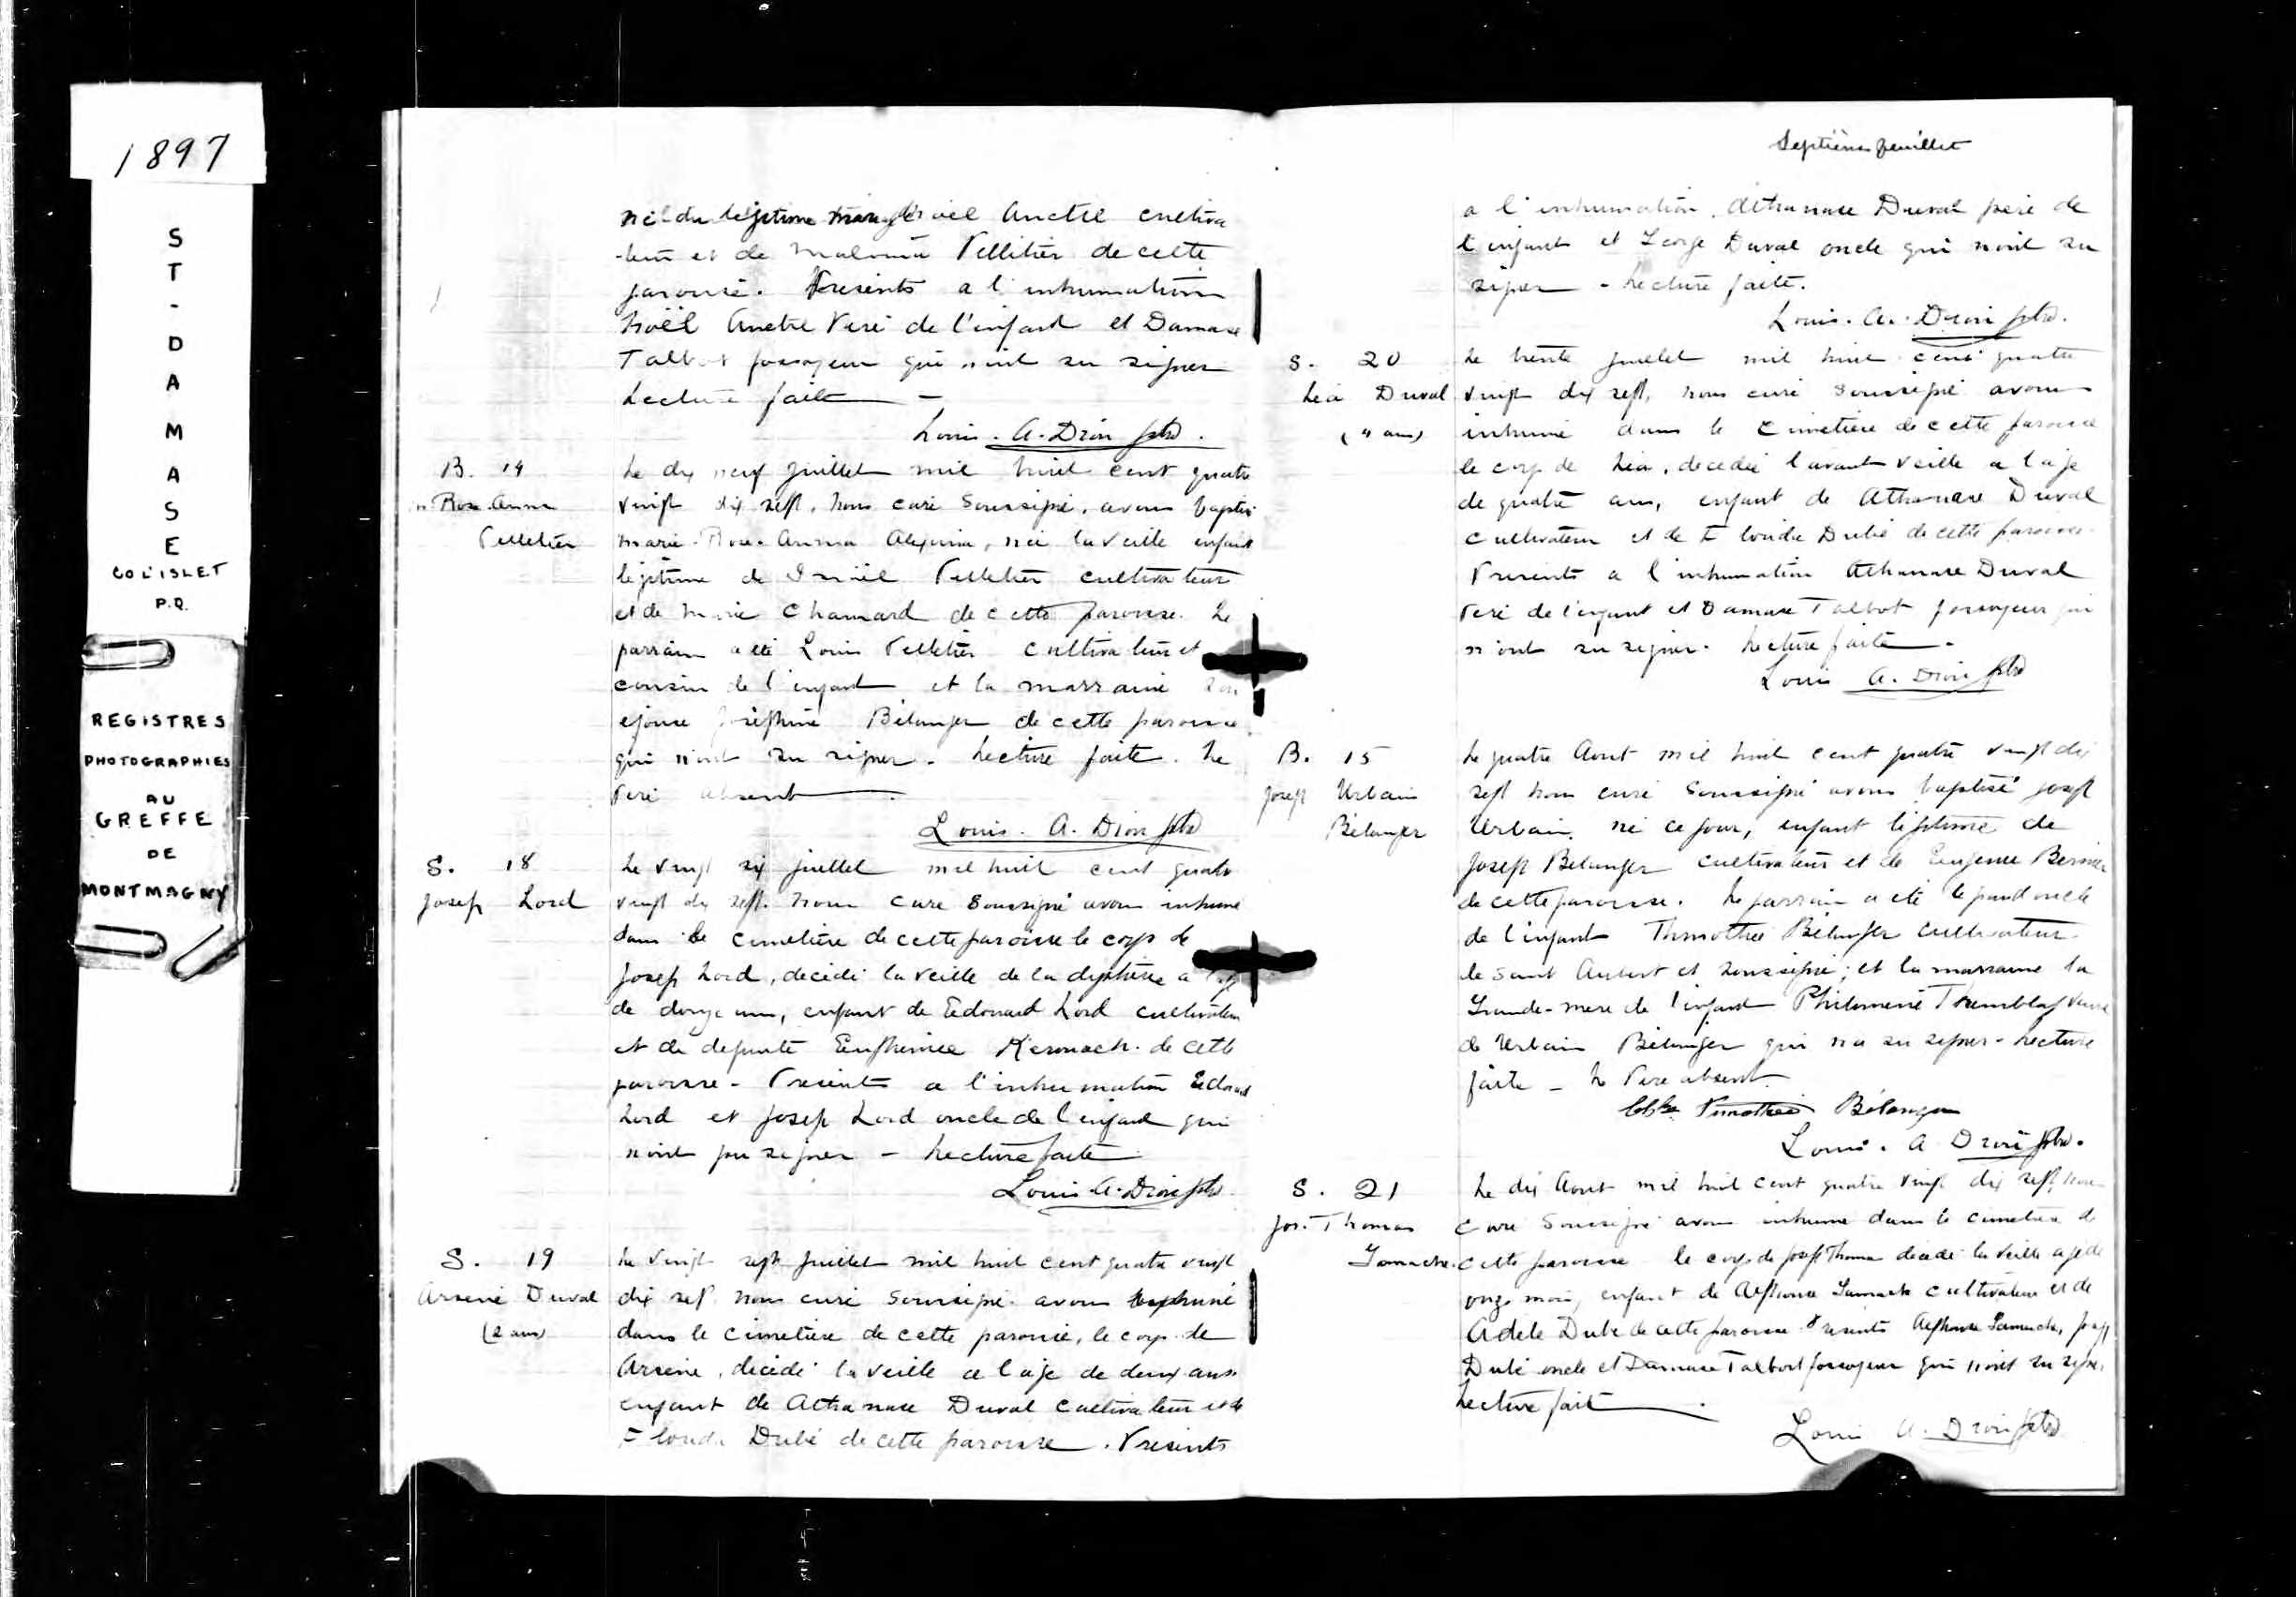 1897
ST-DAMASE
CO L'ISLET
P.Q.
REGISTRES
PHOTOGRAPHIES
AU
GREFFE
DE
MONTMAGNY
né du legitime Noël Anctil cultiva
-teur et de Malvina Pelletier de cette
paroisse. Presents a l'inhumation
Noël Anctil Pere de l'enfant et Damase
Talbot fossoyeur qui n'ont su signer
Lecture faite —
Louis. A. Dion ptre.
B. 14
M. Rose Anna
Pelletier
Le dix neuf juillet mil huit cent quatre
vingt dix sept, nous curé soussigné, avons baptisé
Marie-Rose-Anna Alexina, née la veille enfant
légitime de Pelletier cultivateur
et de Marie Chamard de cette paroisse. Le
parrain a été Louis Pelletier cultivateur et
cousin de l'enfant et la marraine son
epouse Joséphine Bélanger de cette paroisse
qui n'ont su signer. Lecture faite. Le
Pere absent
Louis. A. Dion ptre
S. 18
Joseph Lord
Le vingt six juillet mil huit cent quatre
vingt dix sept. nous curé soussigné avons inhumé
dans le cimetière de cette paroisse le corps de
Joseph Lord, decédé la veille de la a l'age
de douze ans, enfant de Edouard Lord cultivateur
et de defunte Euphemie Kerouack de cette
paroisse - Presents a l'inhumation Edouard
Lord et Joseph Lord oncle de l'enfant qui
n'ont pu signer - Lecture faite
Louis A. Dion ptre.
S. 19
Arsène Duval
(2 ans)
Le vingt sept juillet mil huit cent quatre vingt
dix sept nous curé soussigné avons inhumé
dans le cimetière de cette paroisse, le corps de
Arsène, decédé la veille a l'age de deux ans
enfant de Athanase Duval cultivateur et de
Dubé de cette paroisse. Presents
Septième feuillet
a l'inhumation, Athanase Duval père de
l'enfant et George Duval oncle qui n'ont su
signer - Lecture faite.
Louis. A. Dion ptre.
S. 20
Léa Duval
(4 ans)
Le trente juillet mil huit cent quatre
vingt dix sept, nous curé soussigné avons
inhumé dans le cimetière de cette paroisse
le corps de Léa, decedée l'avant veille a l'age
de quatre ans, enfant de Athanase Duval
cultivateur et de Dubé de cette paroisse
Presents a l'inhumation Athanase Duval
Pere de l'enfant et Damase Talbot fossoyeur qui
n'ont su signer. Lecture faite.
Louis A. Dion ptre
B. 15
Joseph Urbain
Bélanger
Le quatre Aout mil huit cent quatre vingt dix
sept nous curé soussigné avons baptisé Joseph
Urbain, né ce jour, enfant légitime de
Joseph Bélanger cultivateur et de Eugenie Bernier
de cette paroisse. Le parrain a été le grand oncle
de l'enfant Thimothée Bélanger cultivateur
de Saint Aubert et soussigné; et la marraine la
Grande-mere de l'enfant Philomene veuve
de Urbain Bélanger qui n'a su signer - Lecture
faite - Le Pere absent.
Timothée Bélanger
Louis. A Dion ptre.
S. 21
Jos. Thomas
Gamache
Le dix Aout mil huit cent quatre vingt dix sept, nous
curé soussigné avons inhumé dans le cimetière de
cette paroisse le corps de Joseph Thomas decédé la veille agé de
onze mois, enfant de Alphonse Gamache cultivateur et de
Adele Dubé de cette paroisse Presents Alphonse Gamache, Joseph
Dubé oncle et Damase Talbot fossoyeur qui n'ont su signer
Lecture faite.
Louis A. Dion ptre